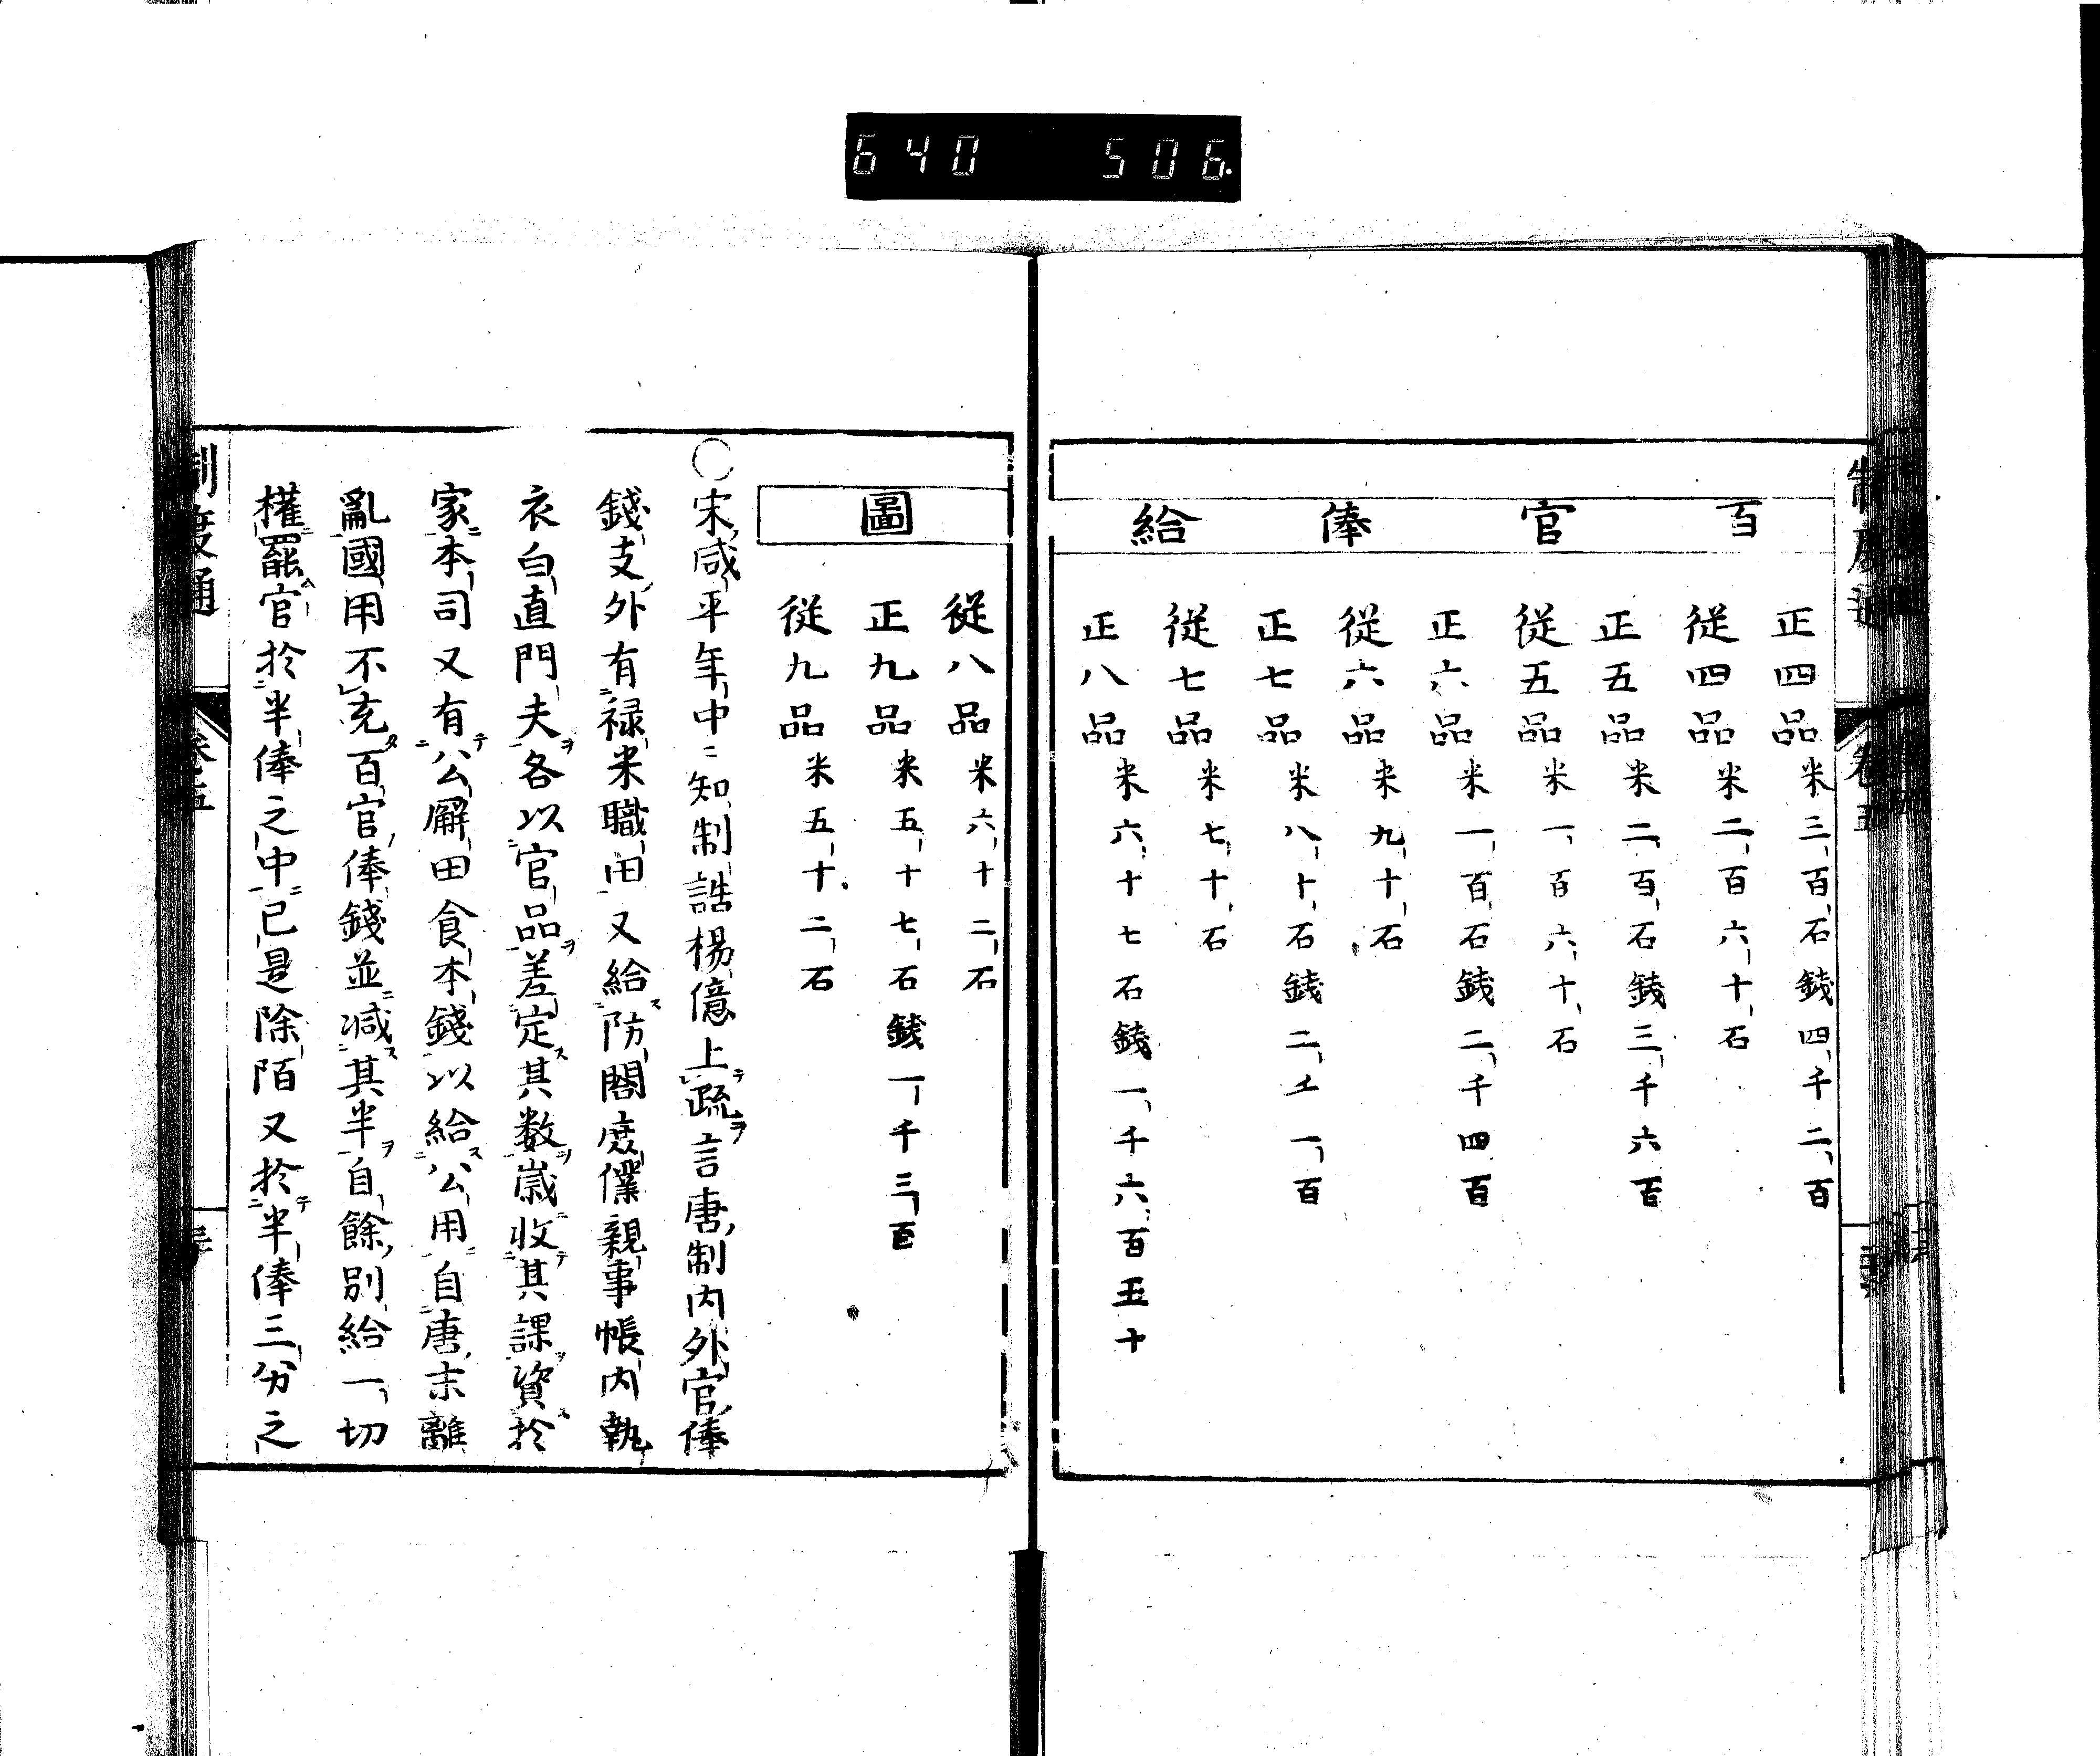 640 506.
制度通 卷五
百官俸給
正四品米三百石錢四千二百
従四品米二百六十石
正五品米二百石錢三千六百
従五品米一百六十石
正六品米一百石錢二千四百
従六品米九十石
正七品米八十石錢二千一百
従七品米七十石
正八品米六十七石錢一千六百五十
圖
従八品米六十二石
正九品米五十七石錢一千三百
従九品米五十二石
○宋咸平年中ニ知制誥楊億上テ疏ヲ言唐制内外官俸
錢支外有禄米職田又給防閤庶僕親事帳内執
衣白直門夫各以官品差定其数歳收其課資於
家本司又有公廨田食本錢以給公用自唐末離
亂國用不充百官俸錢並減其半自餘別給一切
權罷官於半俸之中已是除陌又於半俸三分之
制度通 卷五